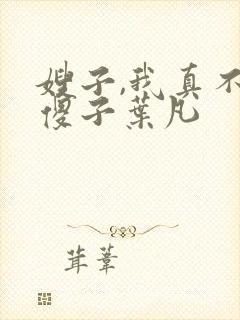 嫂子,我真不
傻子葉凡
茸葦